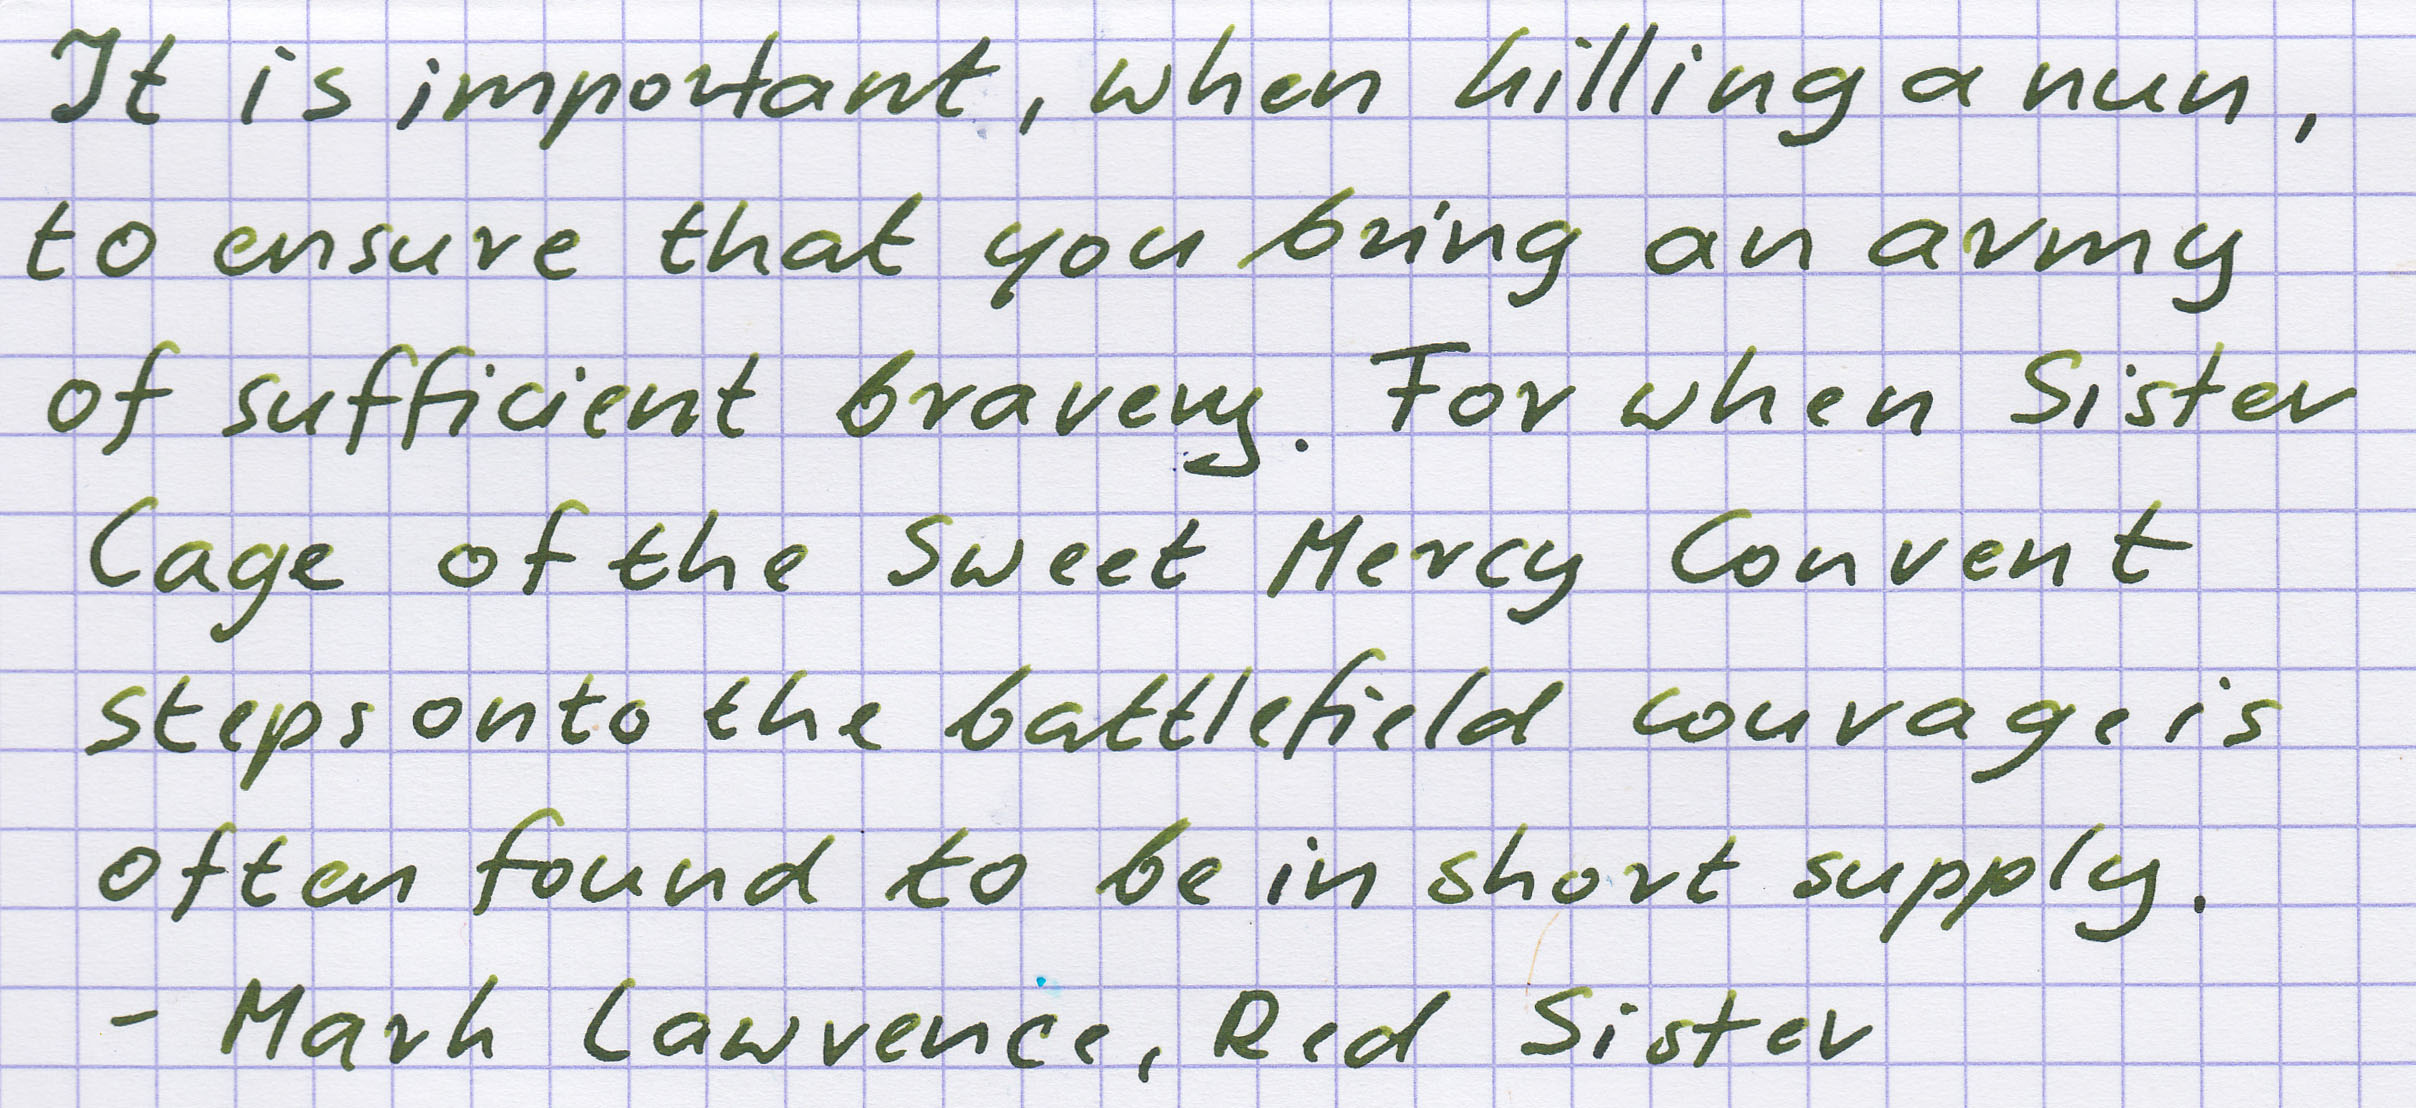 It is important, when killing a nun,
to ensure that you bring an army
of sufficient bravery. For when Sister
Cage of the Sweet Mercy Convent
steps onto the battlefield courage is
often found to be in short supply.
- Mark Lawrence, Red Sister